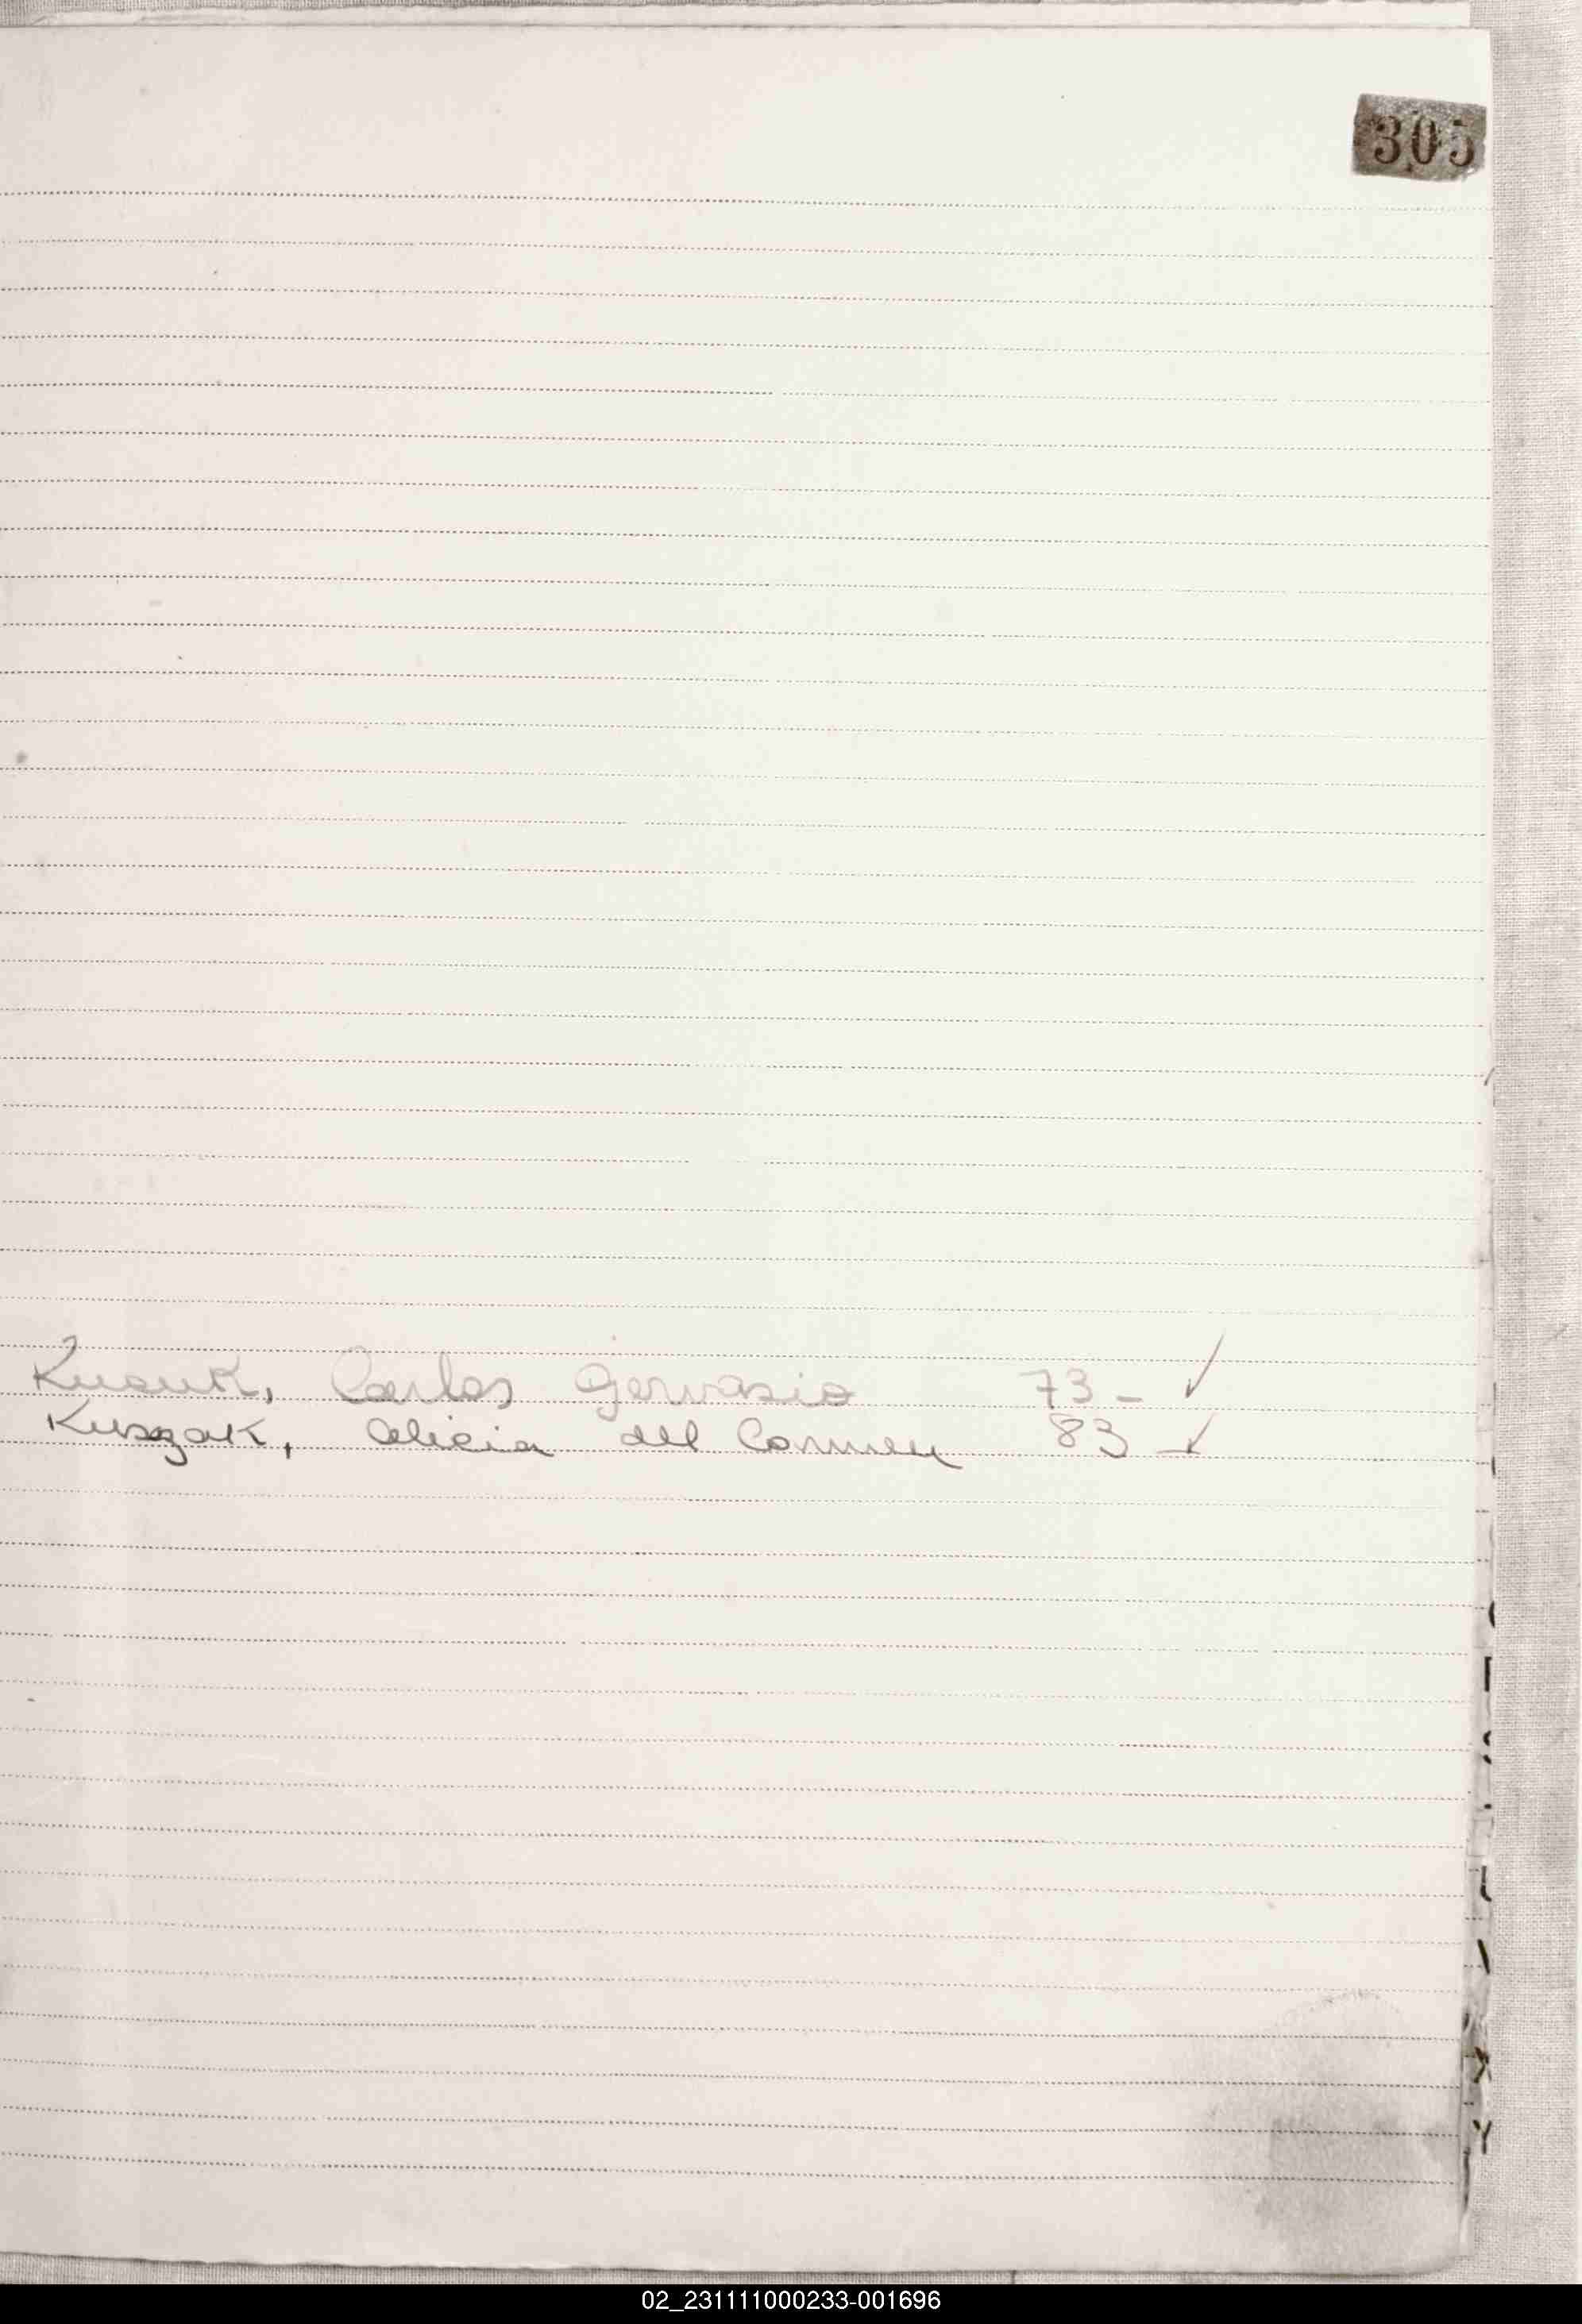 305
Knauk, Carlos Gervasio 73- ✓
Kuszak, Alicia del Carmen 83-✓
X
Y
02_231111000233-001696